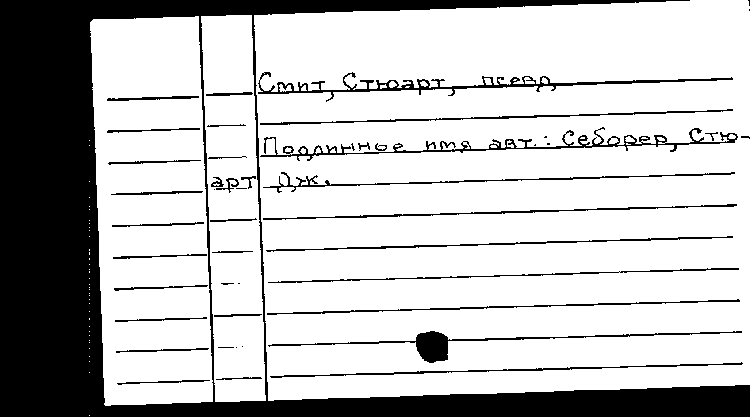 Смит, Стюарт, псевд.
Подлинное имя авт.: Себорер, Стю-
арт Дж.